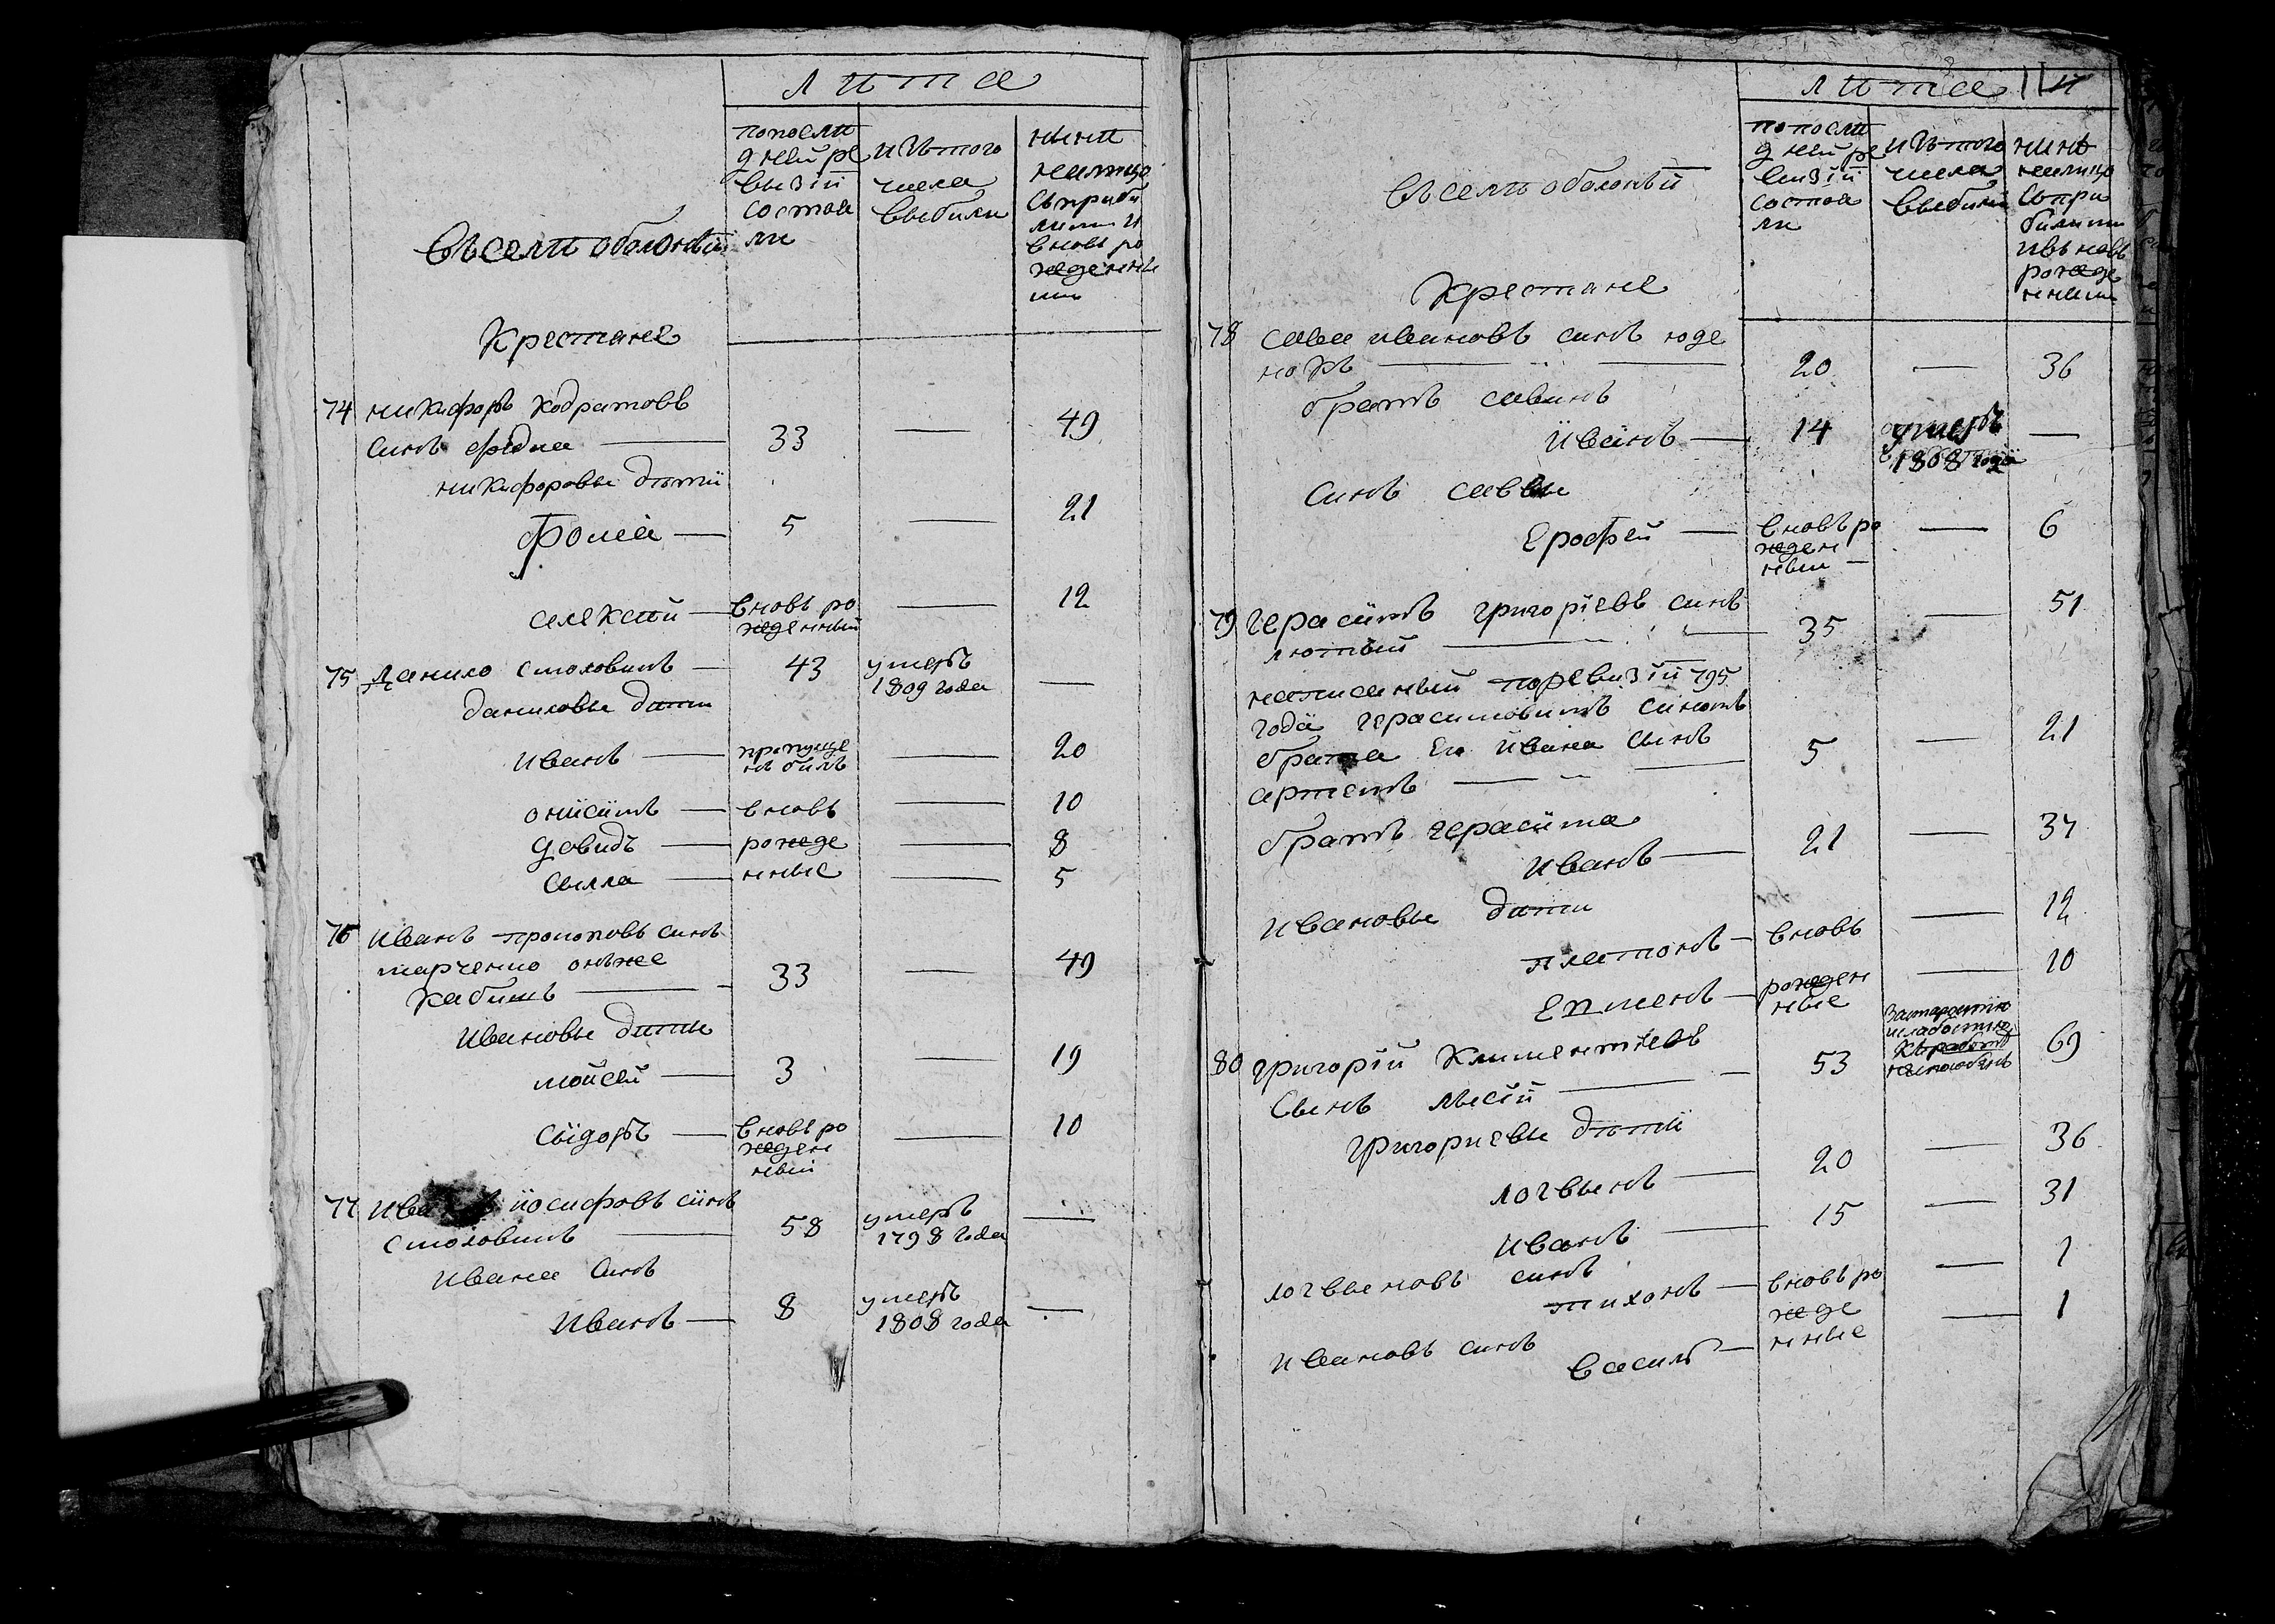 лита
попосли
дней ре
визіи
состоя
ли
изътого
числа
выбили
нини
налицо
съприби
лими и
вновь ро
жденни
ми
Въсели оболоньи
Крестяне
74 никифоръ кодратовъ
синъ фидиа — 33 — 49
никифоровы дѣти
Фома — 5 — 21
алексѣй — вновь ро
жденный — 12
75 Данило столовитъ — 43 умеръ
1809 года —
даниловы дити
иванъ — пропуще
нъ билъ — 20
онисимъ — вновь — 10
довидъ — рожде — 8
сылла — нные — 5
76 иванъ прокоповъ синъ
марченко онъже
кабишъ — 33 — 49
ивановы дити
мойсей — 3 — 19
сыдоръ — вновь ро
жден
ный — 10
77 ива йосифовъ синъ
столовитъ — 58 умеръ
1798 года —
ивана синъ
иванъ — 8 умеръ
1808 года —
лита
попосли
дней ре
визіи
состоя
ли
изътого
числа
выбили
нинѣ
налицо
съпри
билими
ивъновь
рожде
нними
Въсели оболоньи
Крестяне
78 сава ивановъ синъ юде
нокъ — 20 — 36
братъ савинъ
иванъ — 14 умеръ
1808 года —
синъ саввы
Ерофей — вновь ро
жден
ный — 6
79 герасимъ григоріевъ синъ
лютый — 35 — 51
написаный поревизіи 795
года герасимовимъ синомъ
брата Его ивана сынъ
артемъ — 5 — 21
братъ герасима
иванъ — 21 — 37
ивановы дити
платонъ — вновь — 12
Епменъ — рожден
ные — 10
80 григорій климентіевъ
сынъ лысій — 53 застаростію
ислабостию
къработѣ
неспособенъ 69
григориевы дѣти
логвынъ — 20 — 36
иванъ — 15 — 31
логвыновъ синъ
тихонъ — вновь ро — 1
жде
ивановъ синъ
василь — нные — 1